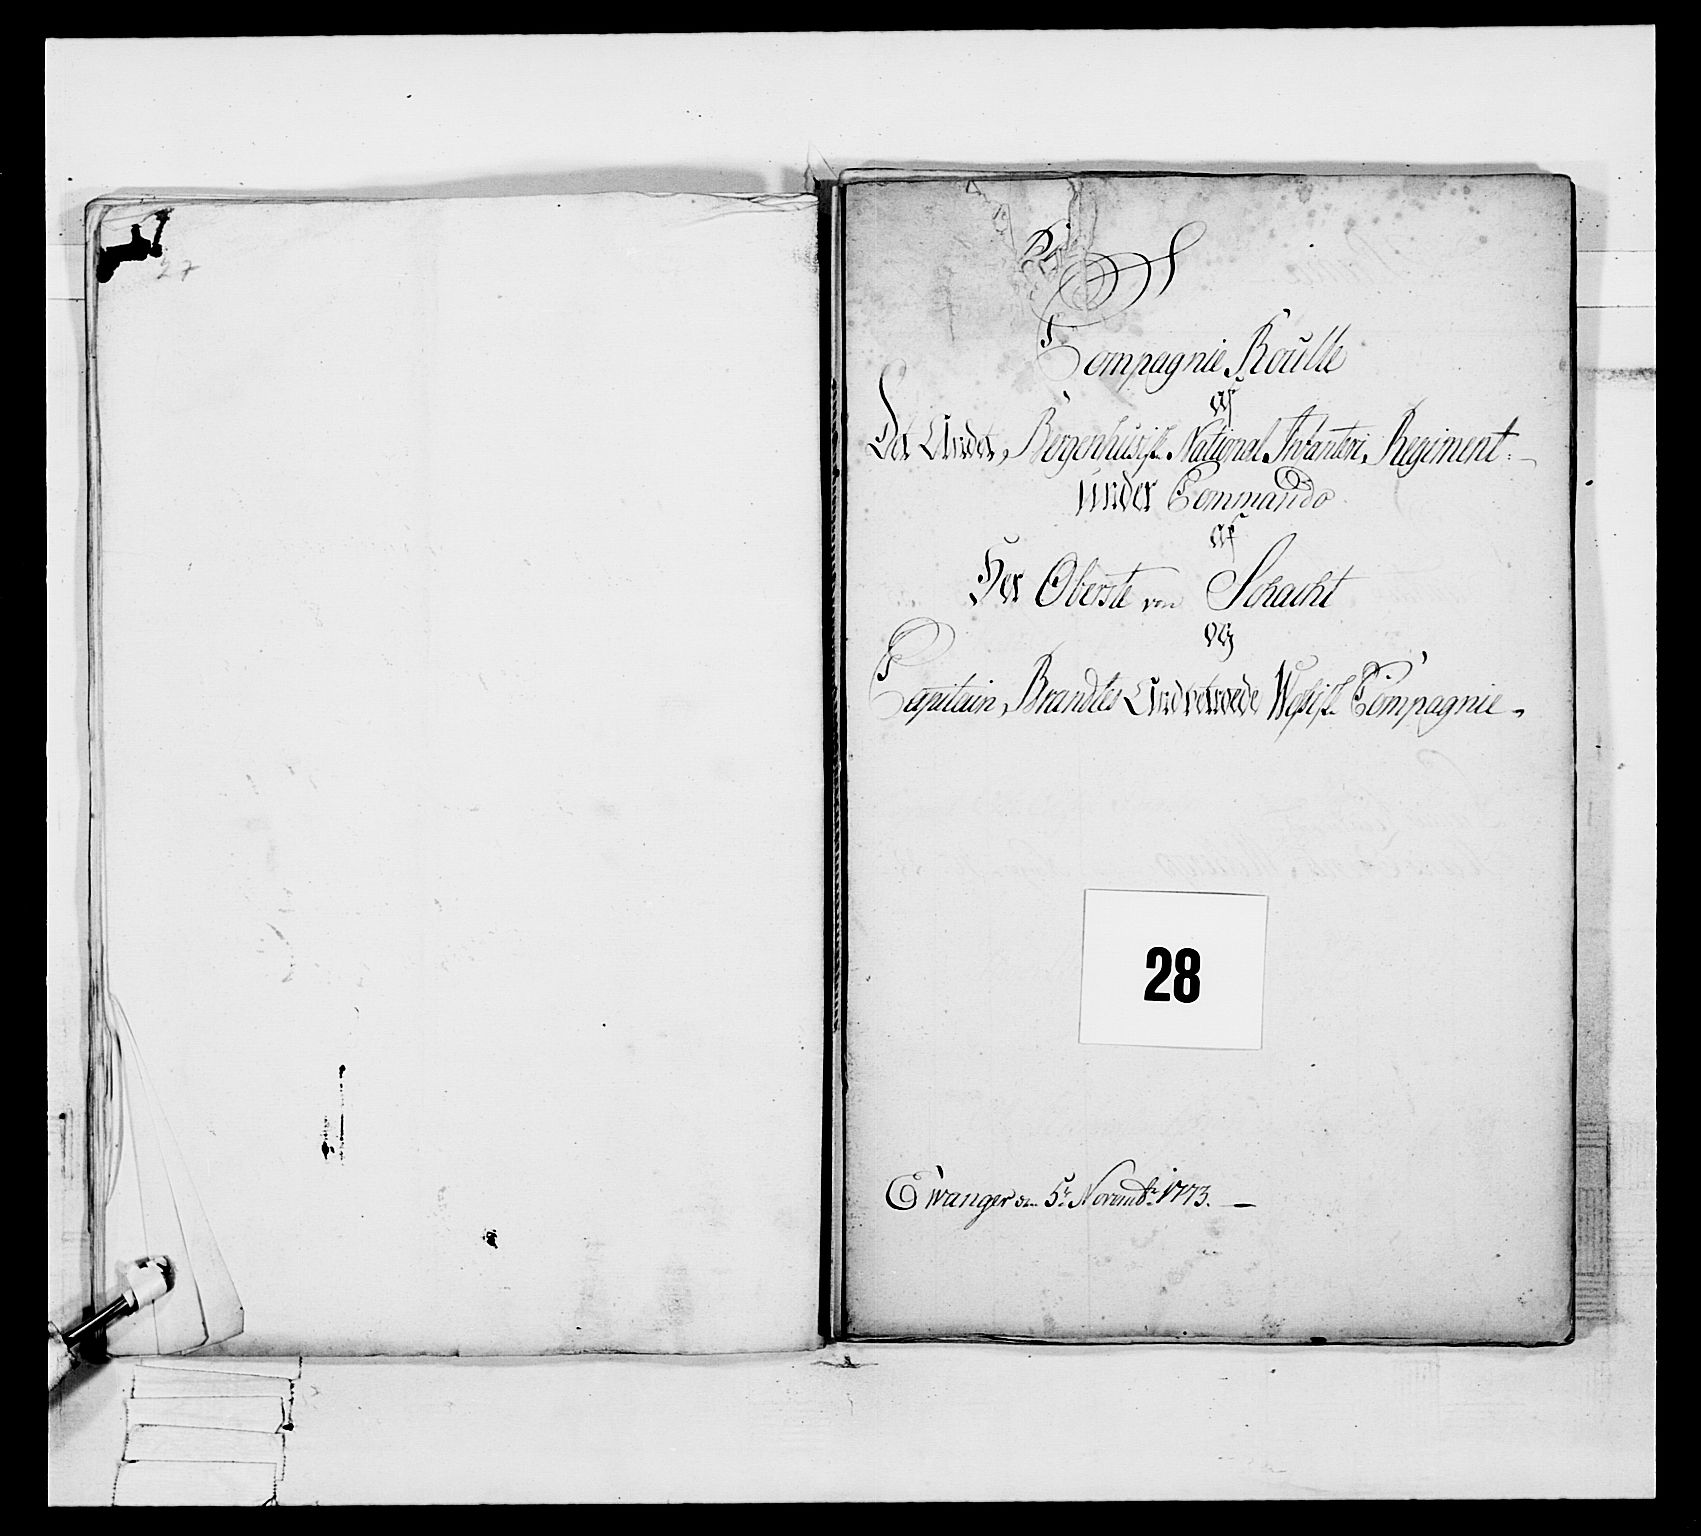 27
Compagnie Roulle
af
Det Andet Bergenhusiske National Infanteri Regiment:
under Commando
af
Her Oberste von Schacht
og
Capitain Brandts Compagnie.
28
Ewanger den 5te Novembr: 1773.